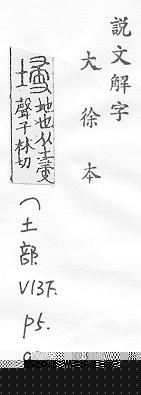 說文解字
大徐本
地也从土
聲子林切
(土部
V13下.
p5.